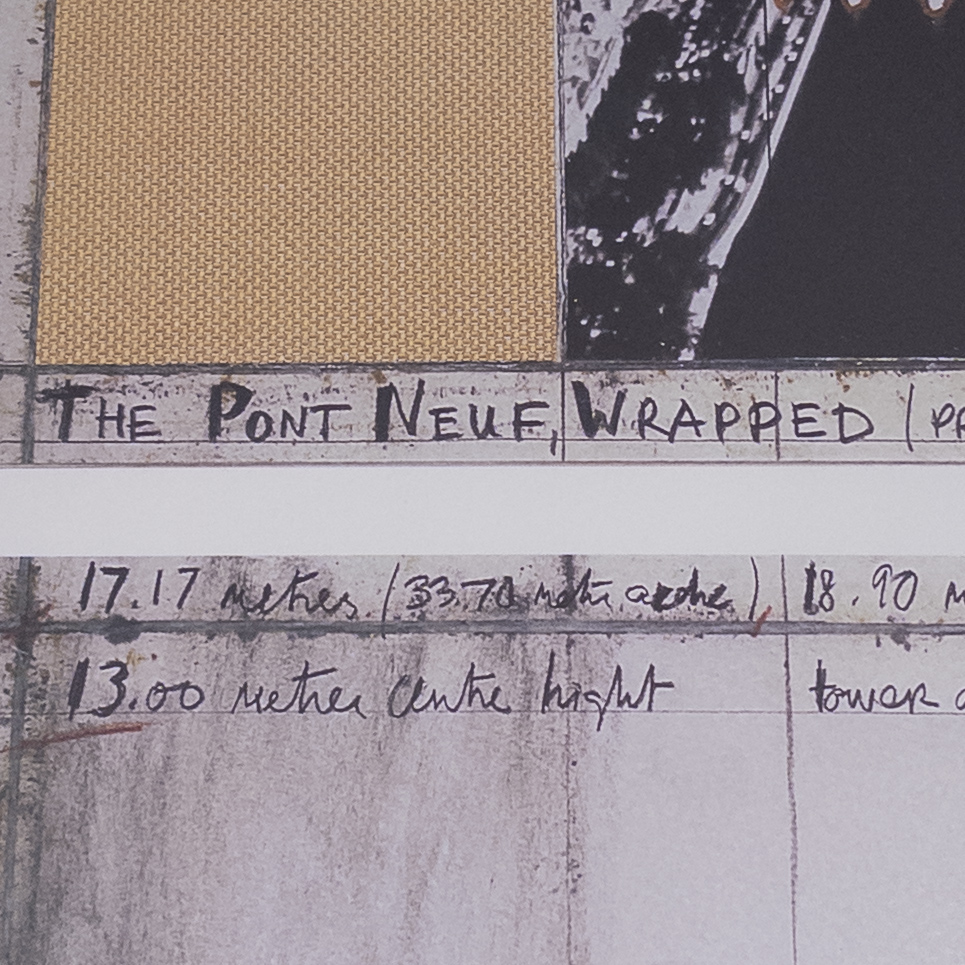 THE PONT NEUF, WRAPPED (PR
17.17 metres (33.70 metre arche) 18.90 m
13.00 metres centre hight tower